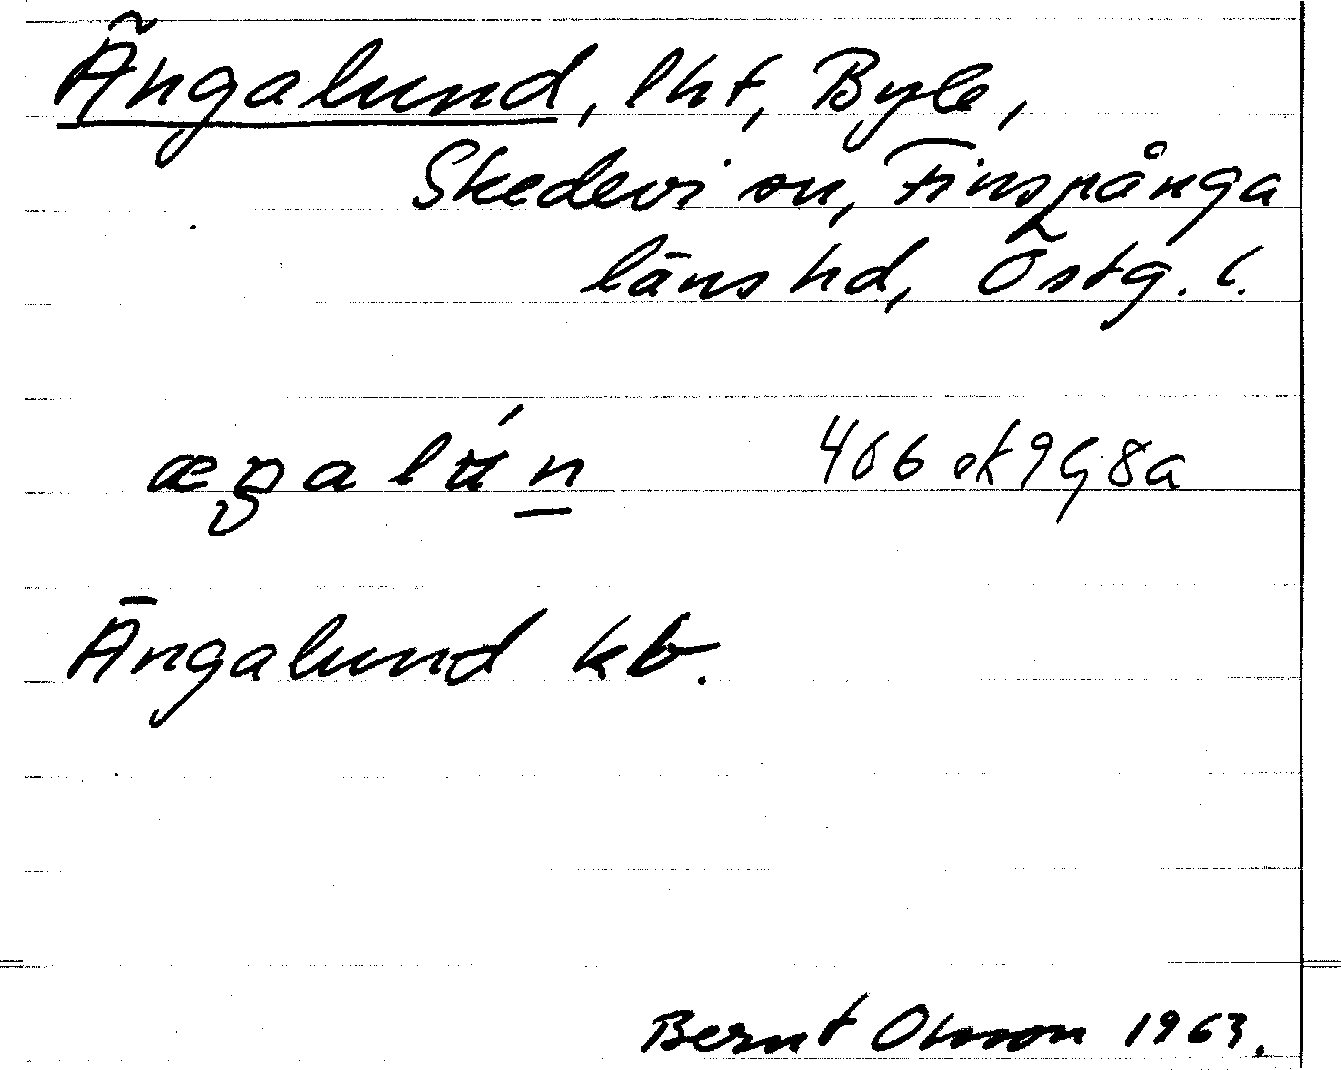 Ängalund, lht, Byle,
Skedevi sn, Finspånga
läns hd, Östg. l.
æŋalún 466 ek 9G8a
Ängalund kb.
Bernt Olsson 1963.